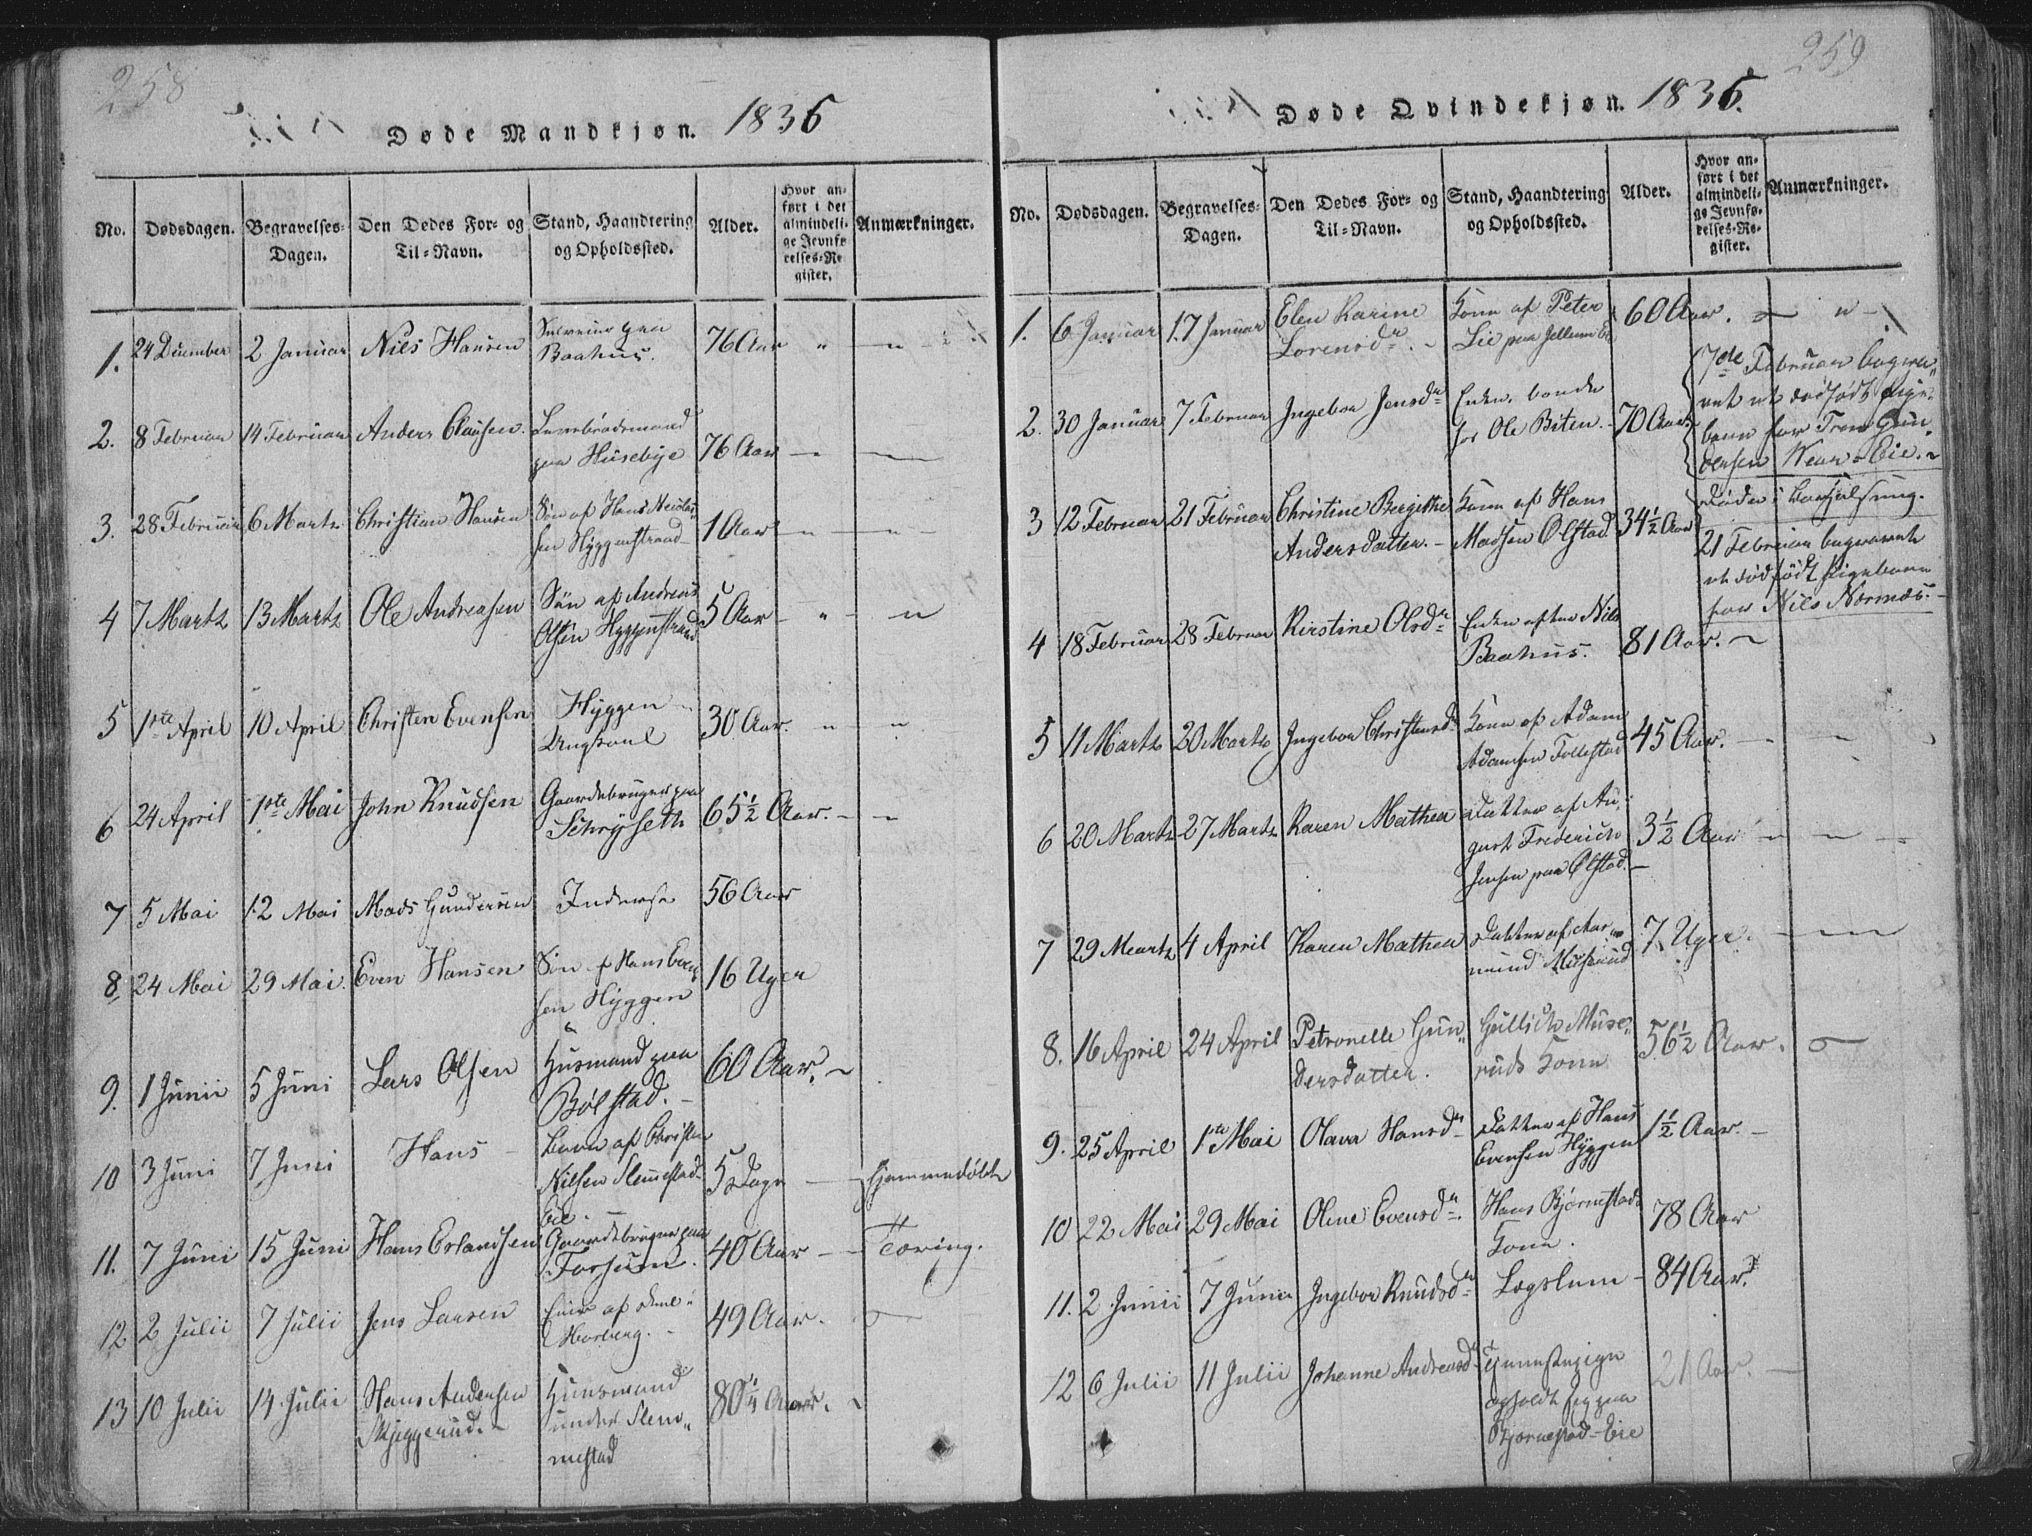 258
Døde Mandkjøn. 1836
No.
Dødsdagen.
Begravelses-
Dagen.
Den Dødes For- og
Til-Navn.
Stand, Haandtering
og Opholdssted.
Alder.
Hvor an-
ført i det
almindeli-
ge Jevnfø-
relses-Re-
gister.
Anmærkninger.
1. 24 December 2 Januar Niels Hansen
paa
Baahus.
76 Aar
2. 8 Februar 14 Februar Anders Clausen.
paa Husebye
76 Aar
3. 28 Februar 6 Martz Christian Hansen Søn af Hans Nicolai-
sen Hyggenstrand
1 Aar
4 7 Martz 13 Martz Ole Andreasen Søn af Andreas
Olsen Hyggenstrand
5 Aar
5 1ste April 10 April Christen Evensen Hyggen
Ungkarl
30 Aar.
6 24 April 1ste Mai John Knudsen Gaardebruger paa
65½ Aar.
7 5 Mai 12 Mai Mads Gundersen
56 Aar
8. 24 Mai 29 Mai. Even Hansen Søn af Hans Even-
sen Hyggen
16 Uger
9. 1 Junii 5 Juni Lars Olsen Husmand paa
Bølstad.
60 Aar.
10 3 Juni 7 Juni Hans Barn af Christen
Nielsen Slemmestad-
Eie.
5 Dage
Hjemmedøbt
11. 7 Juni 15 Juni Hans Erlandsen Gaardebruger paa
40 Aar
Tæring.
12. 2 Julii 7 Julii Jens Larsen
49 Aar.
13 10 Julii 14 Julii Hans Andersen
Skjeggerud.
Huusmand
under Slem-
mestad
80¼ Aar.
259
Døde Qvindekjøn. 1836.
No.
Dødsdagen.
Begravelses-
Dagen.
Den Dødes For- og
Til-Navn.
Stand, Haandtering
og Opholdssted.
Alder.
Hvor an-
ført i det
almindeli-
ge Jevnfø-
relses-Re-
gister.
Anmærkninger.
1. 6 Januar 17 Januar Elen Karine
Lorensdr.
Kone af Peter
Lie paa
60 Aar.
2. 30 Januar 7 Februar Ingebor Jensdr Enke
for Ole Biten.
70 Aar.
7de Februar begra-
vet et dødfødt Pige-
barn for Gun-
dersen Eie.
3 12 Februar 21 Februar Christine Bergithe
Andersdatter.
Kone af Hans
Madsen Ølstad.
34½ Aar
Døde i Barselseng.
21 Februar begravet
et dødfødt Pigebarn
for Nils Nærnæs.
4 18 Februar 28 Februar Kirstine Olsdr Enke efter Nils
Baahus.
81 Aar.
5 11 Martz 20 Martz Ingebor Christensdr Kone af Adam
Adamsen Follestad
45 Aar.
6 20 Martz 27 Martz Karen Mathea Datter af Au-
gust Frederich
Jensen paa Ølstad.
3½ Aar
7 29 Martz 4 April Karen Mathea Datter af
7 Uger.
8. 16 April 24 April Petronelle Gun-
dersdatter.
Gullich Muse-
ruds Kone
56½ Aar.
9. 25 April 1ste Mai Olava Hansdr Datter af Hans
Evensen Hyggen
1½ Aar.
10 22 Mai 29 Mai Oline Evensdr. Hans Bjørnstads
Kone.
78 Aar
11. 2 Junii 7 Juni Ingebor Knudsdr Lægslem
84 Aar.
12 6 Julii 11 Julii Johanne Andreasdr Tjenestepige
opholdt sig paa
Bjørnestad-Eie
21 Aar.